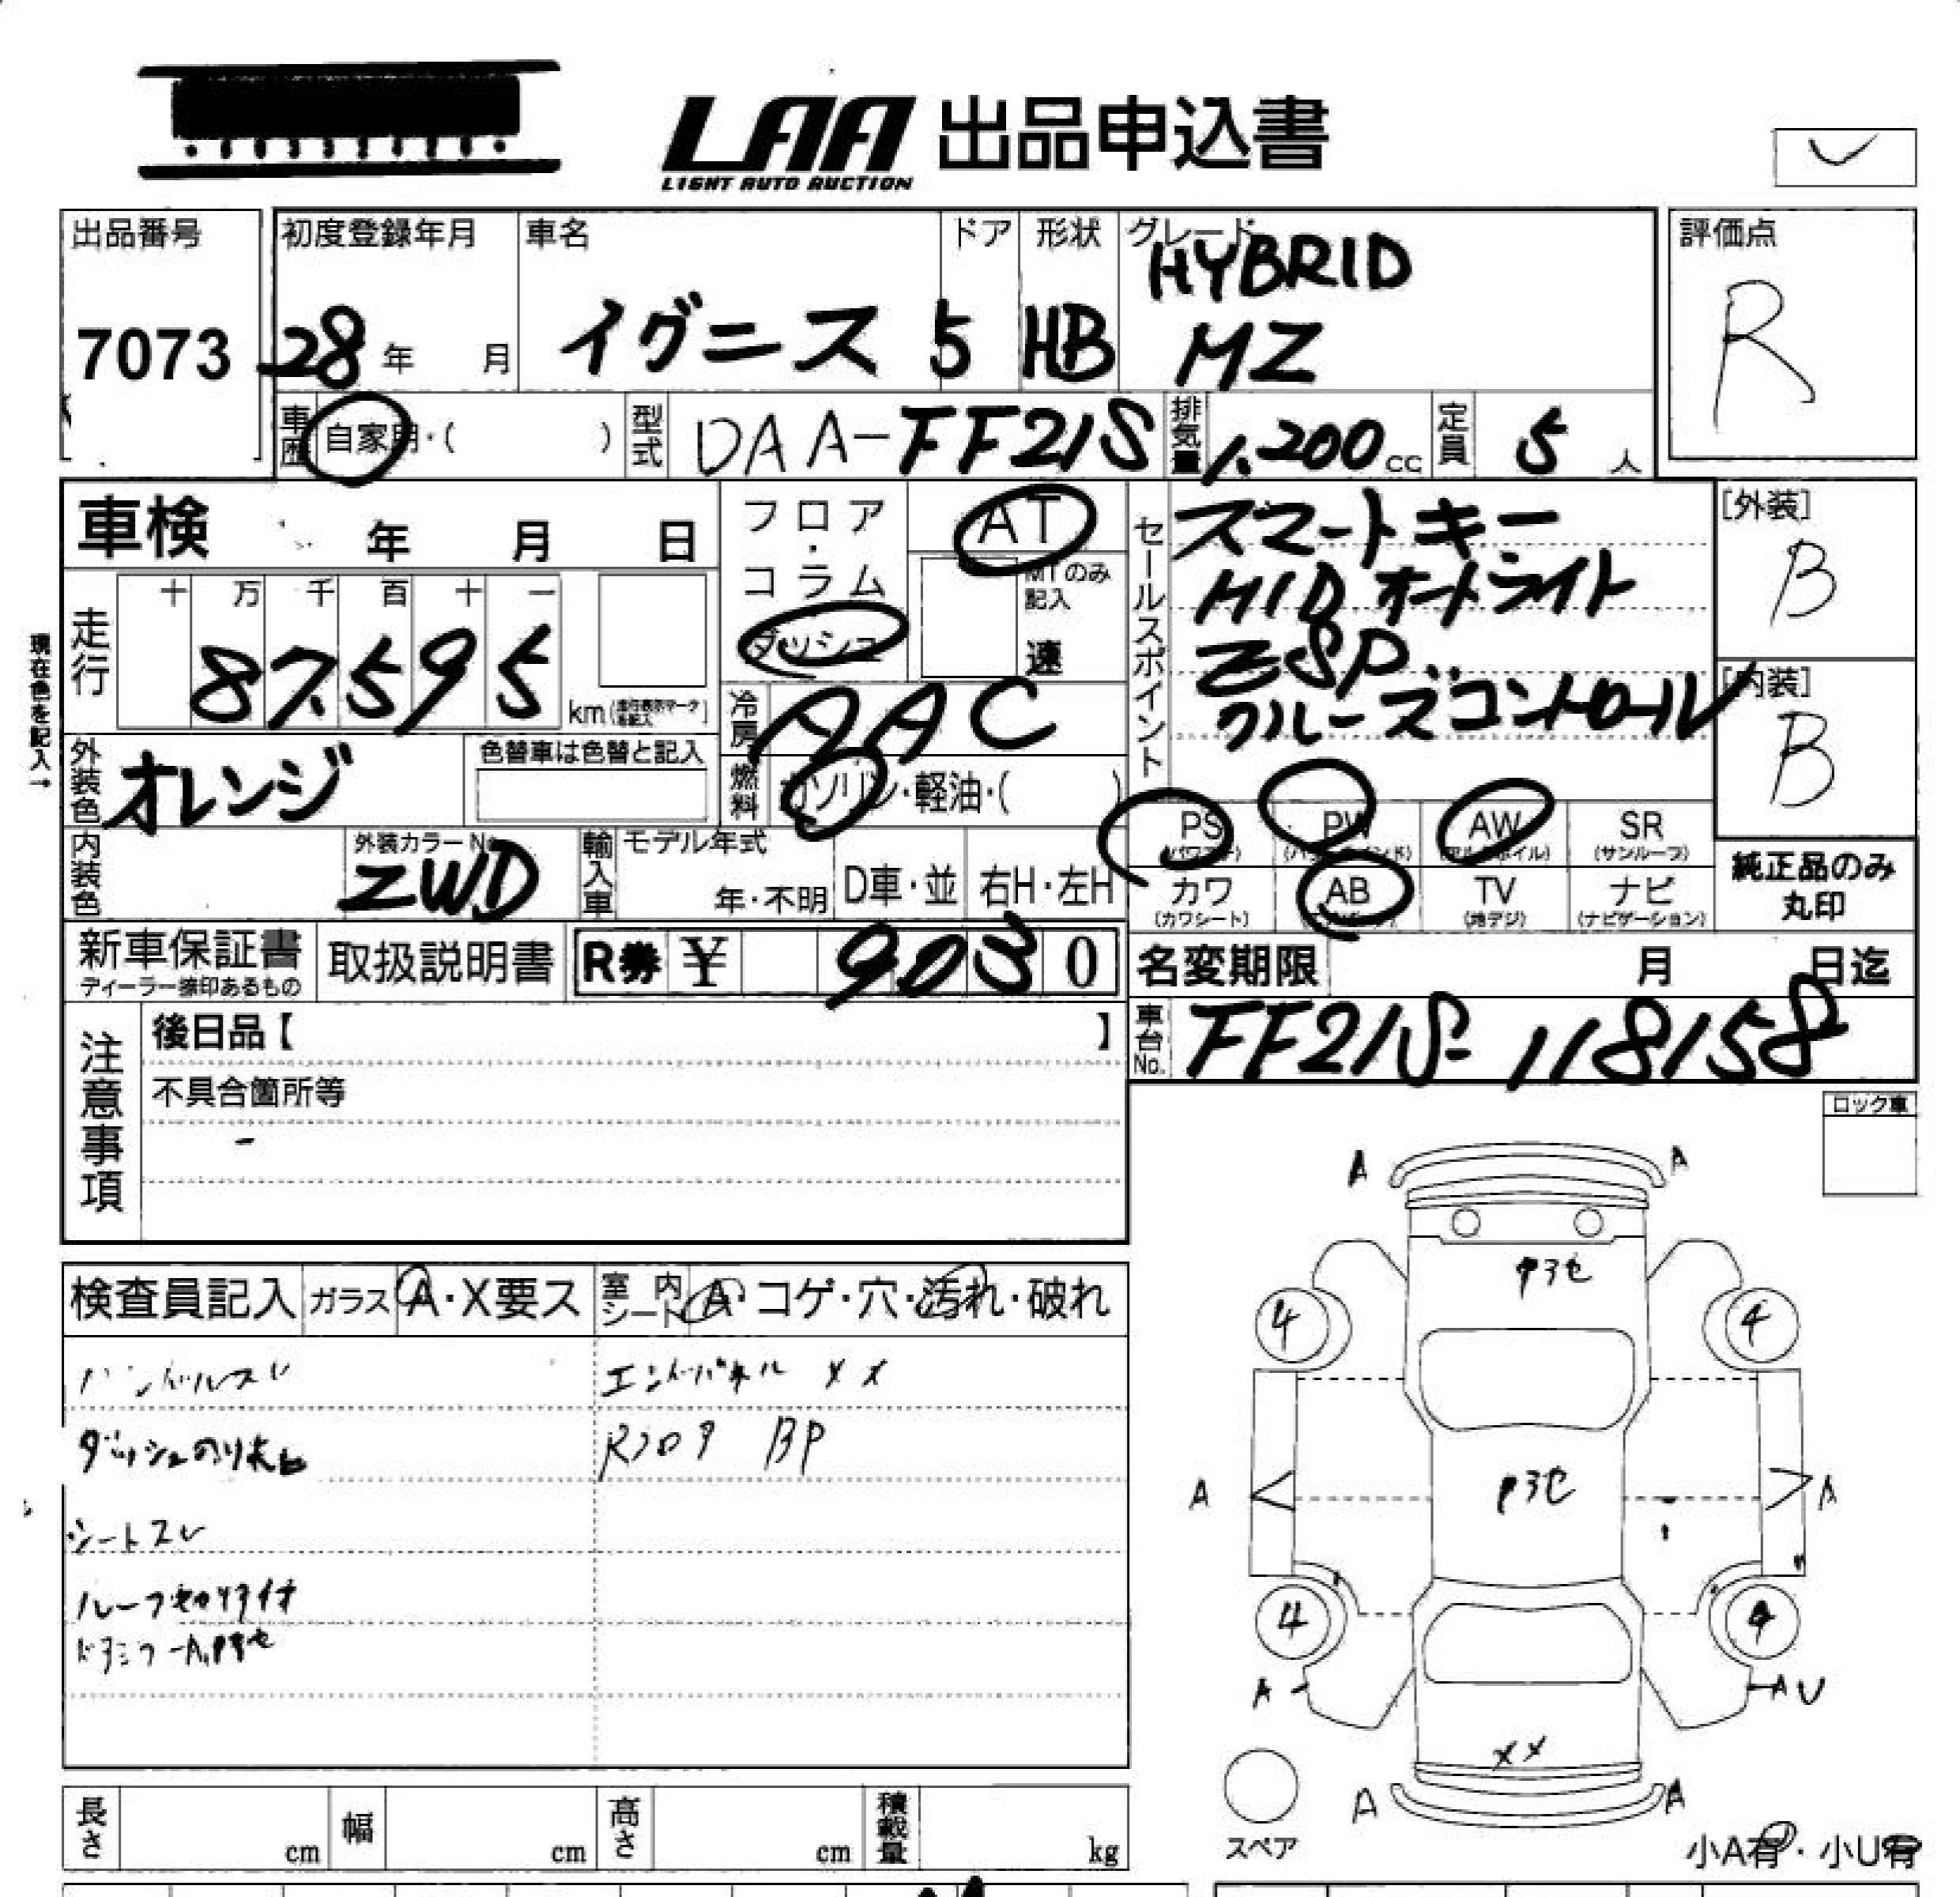 LAA 出品申込書
LIGHT AUTO AUCTION
出品番号
7073
初度登録年月
28 年 月
車名
イグニス
ドア
5
形状
HB
グレード
HYBRID
MZ
評価点
R
車歴 自家用・( )
型式 DAA-FF21S
排気量 1.200 cc
定員 5 人
車検 年 月 日
フロア・コラム
ダッシュ
AT
MTのみ記入
速
セールスポイント
スマートキー
HID オートライト
ESP.
クルーズコントロール
[外装]
B
[内装]
B
現在色を記入→
走行
十 万 千 百 十 一
87.595
km
冷房 AAC
燃料 ガソリン・軽油・( )
外装色 オレンジ
色替車は色替と記入
内装色
外装カラーNo.
ZWD
輸入車
モデル年式
年・不明
D車・並
右H・左H
PS PW AW SR
(サンルーフ)
カワ AB TV ナビ
(カワシート) (地デジ) (ナビゲーション)
純正品のみ
丸印
新車保証書
ディーラー捺印あるもの
取扱説明書
R券 ¥ 9030
名変期限 月 日迄
車台No. FF21S-118158
注意事項
後日品【 】
不具合箇所等
-
ロック車
検査員記入
ガラス A・X要ス
室内シート A・コゲ・穴・汚れ・破れ
ハンドルスレ
エンドパネル XX
ダッシュのり未白
Rフロア BP
シートスレ
A A
4 4
A A
4 4
A A U
XX
A A
スペア
小A有・小U有
長さ cm
幅 cm
高さ cm
積載量 kg